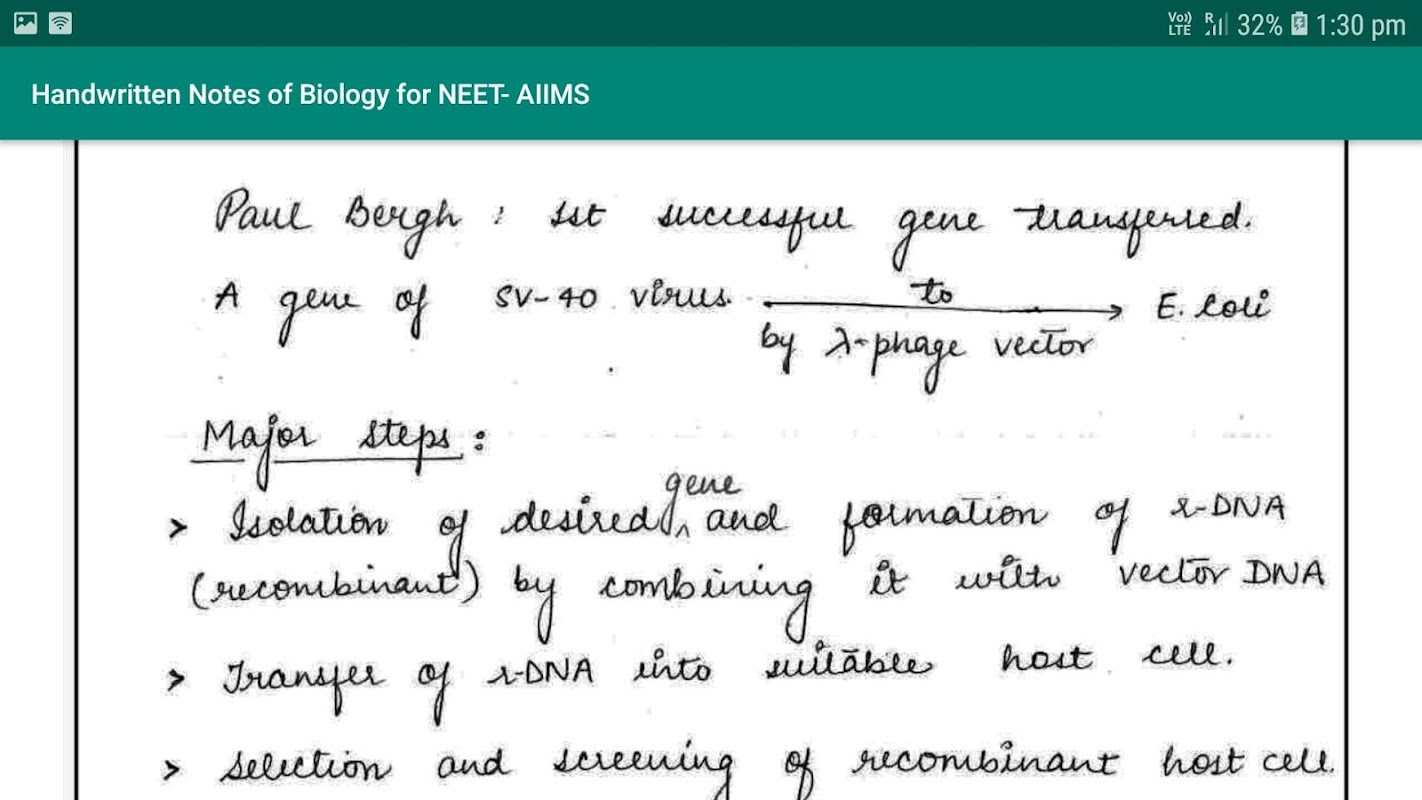 Vo)) LTE R 32% 1:30 pm
Handwritten Notes of Biology for NEET- AIIMS
Paul Bergh : 1st successful gene transferred.
A gene of SV-40 virus to E. coli
by λ-phage vector
Major steps :
gene
> Isolation of desired ^ and formation of r-DNA
(recombinant) by combining it with vector DNA
> Transfer of r-DNA into suitable host cell.
> Selection and screening of recombinant host cell.